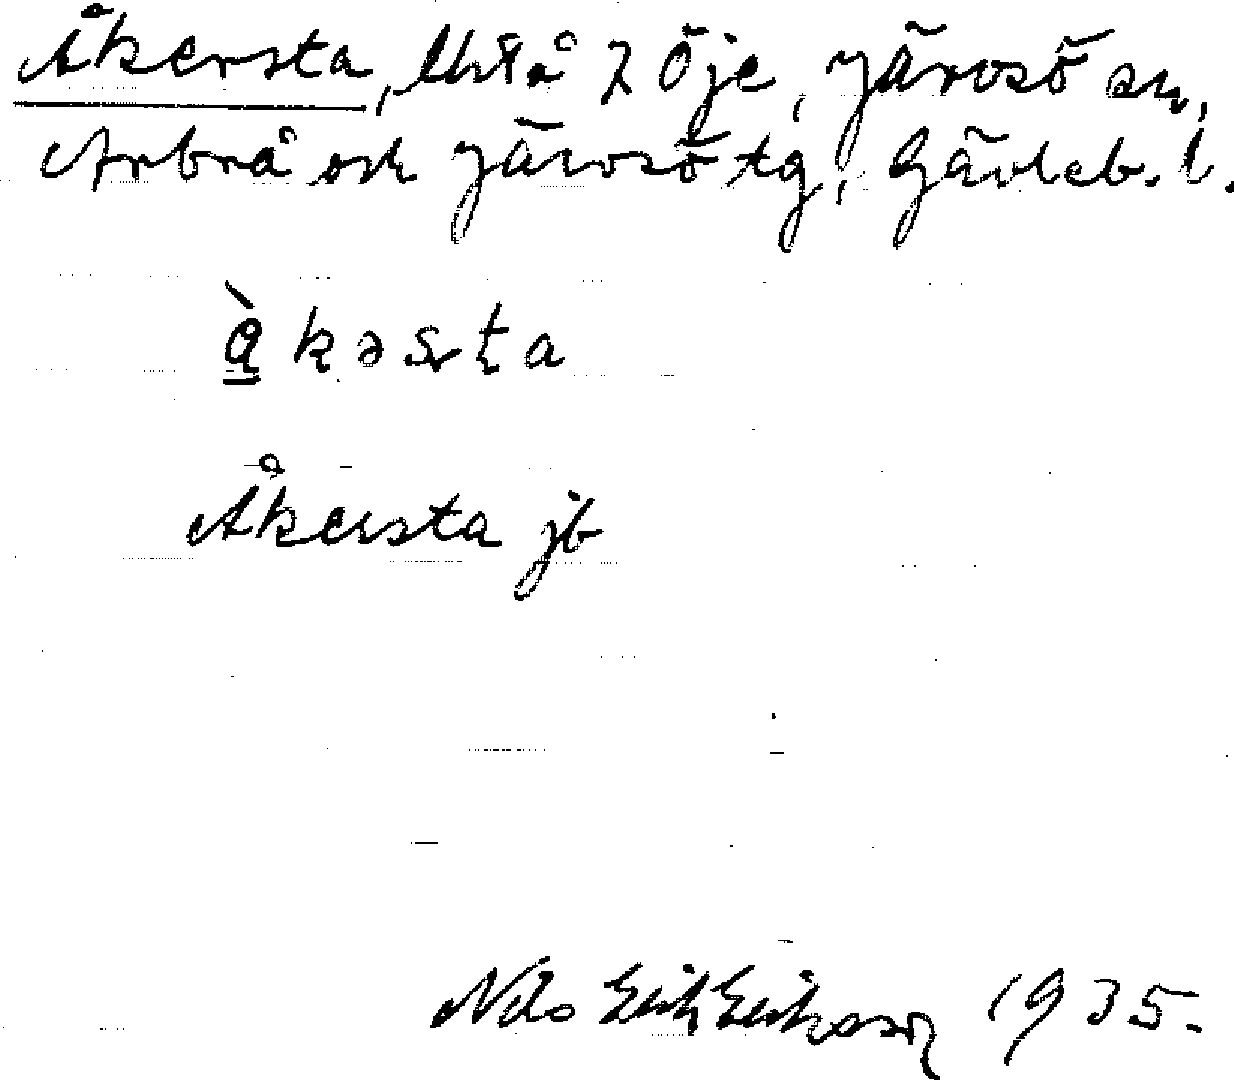 Åkersta, 2 Öje, Järvsö sn,
Arbrå och Järvsö tg, Gävleb. l.
å̀kəsta
Åkersta jb
Nils Erik Eriksson 1935.